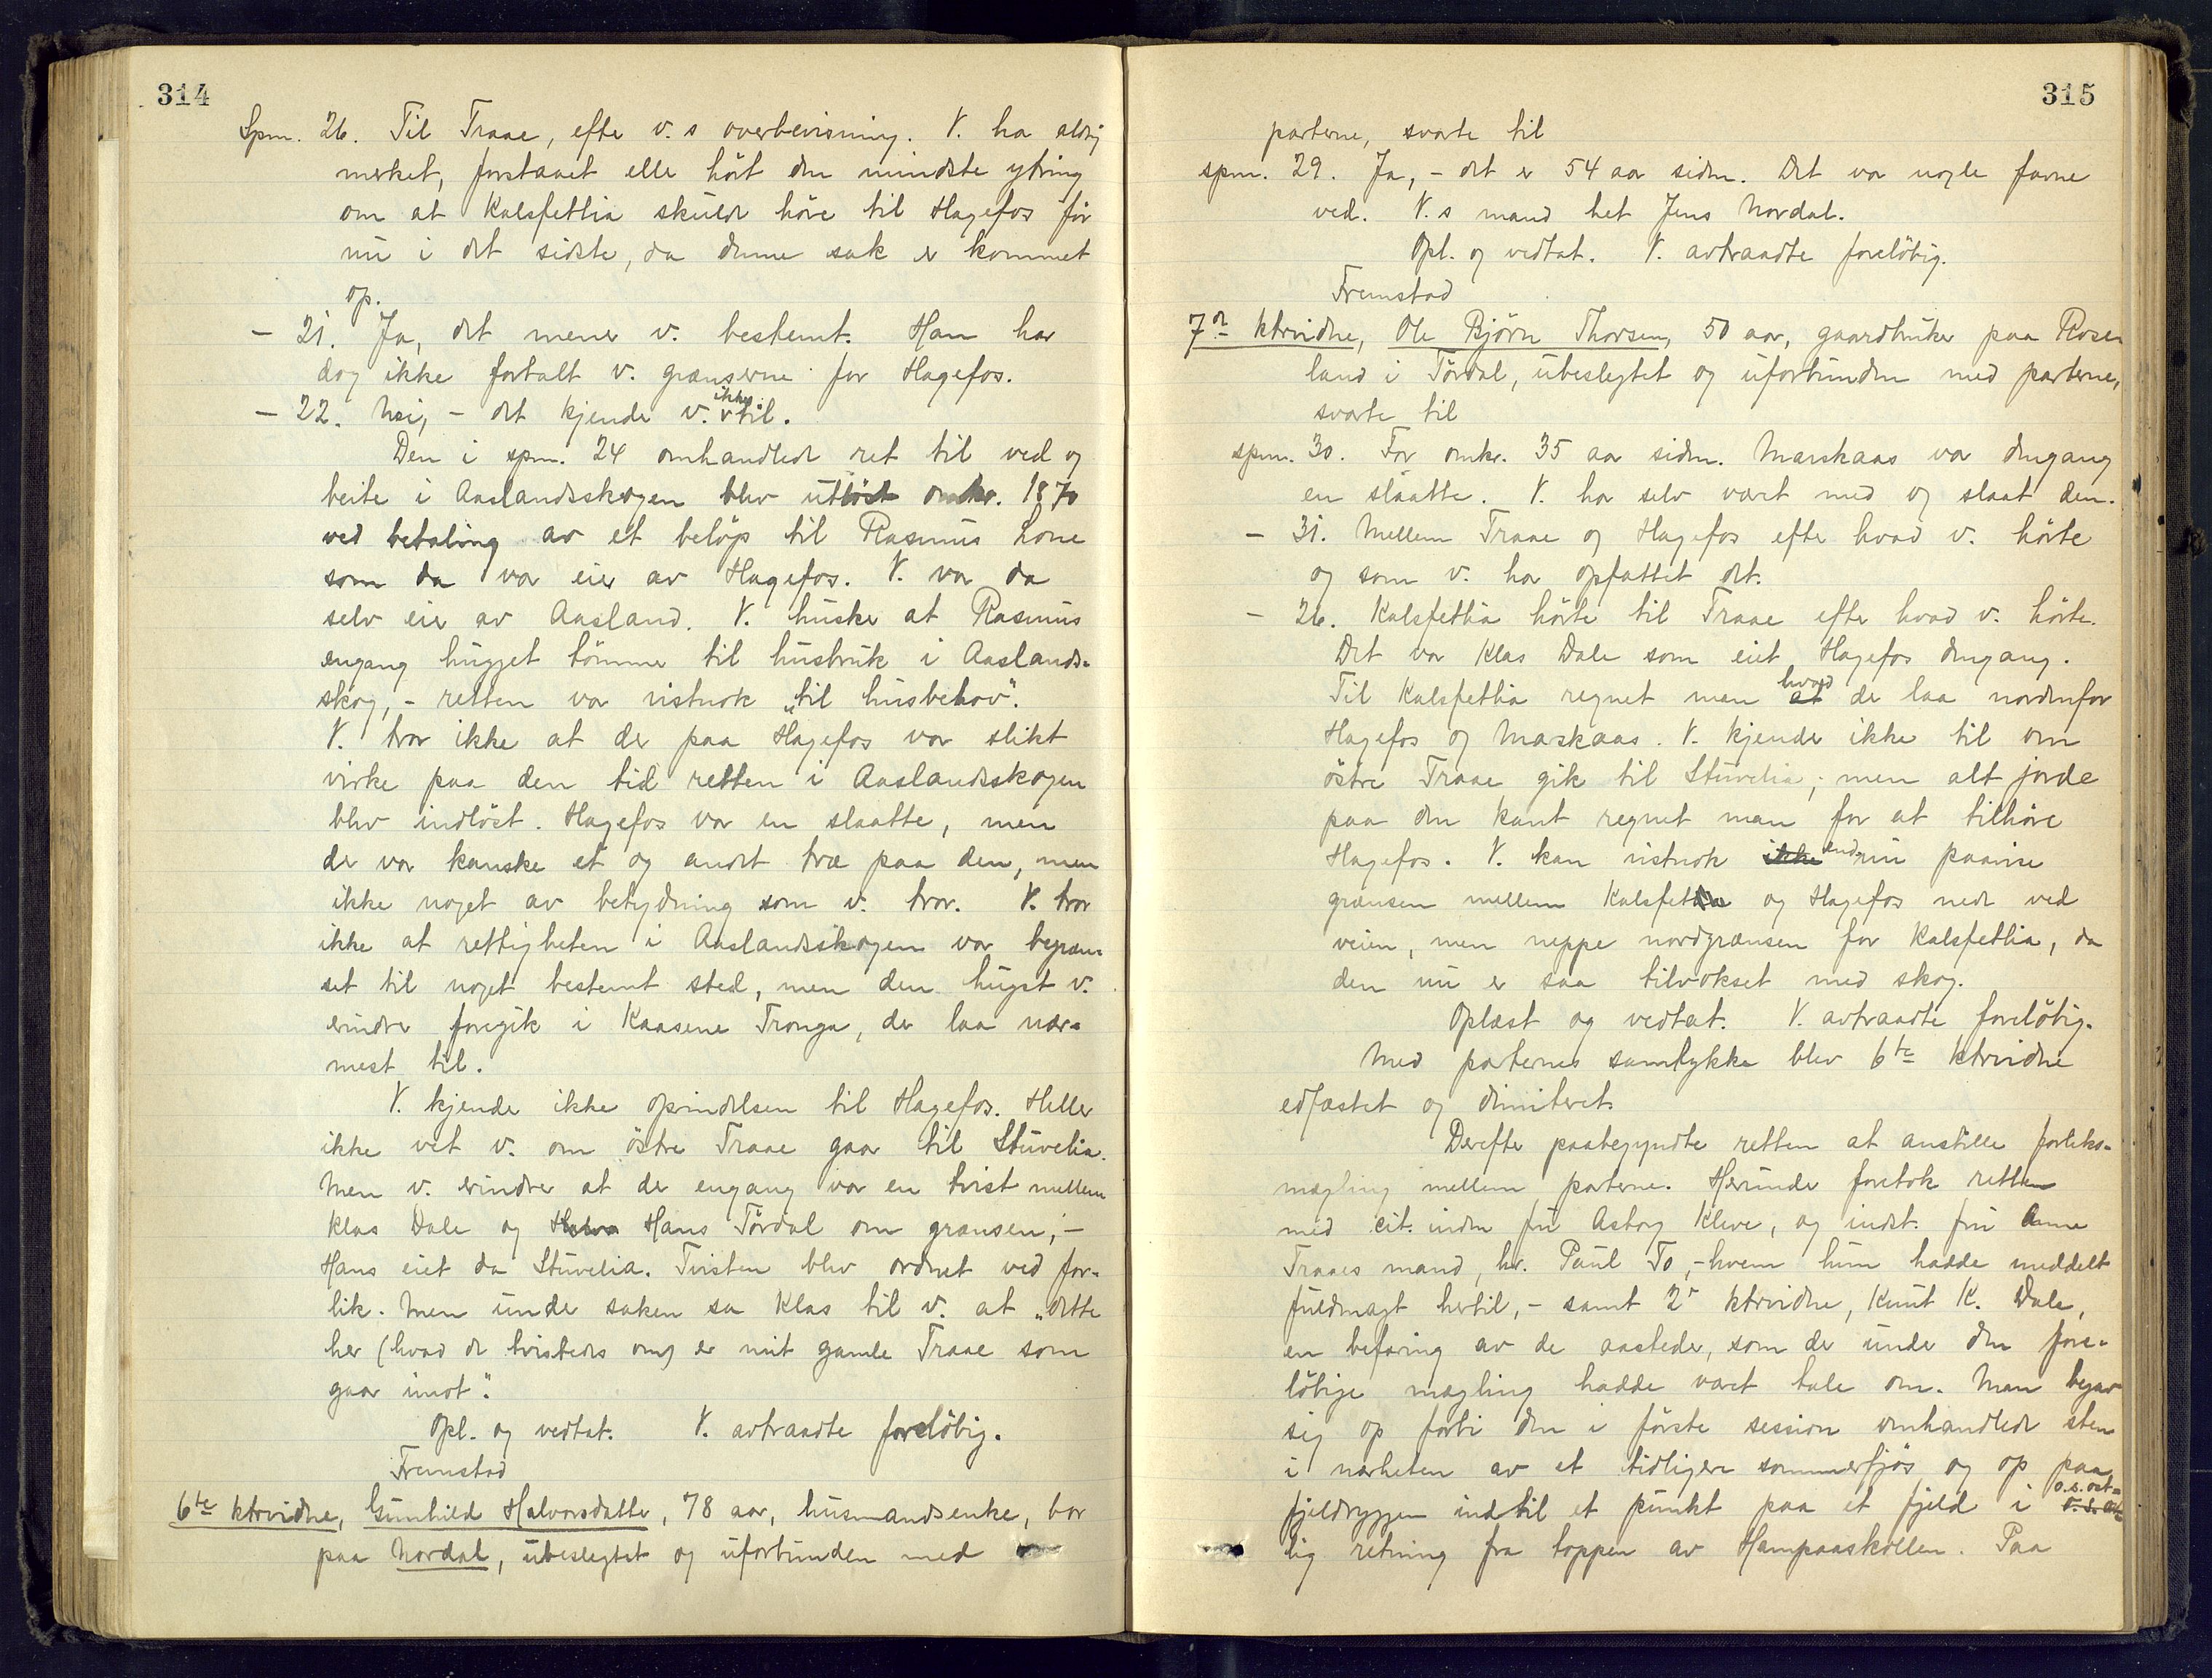 314
Spm. 26. Til Traae, efter v.s overbevisning. V. har aldrig
merket, forstaaet eller hört den mindste ytring
om at Kalsfetlia skulde höre til Hagefos för
nu i det sidste, da denne sak er kommet
op.
- 21. Ja, det mener v. bestemt. Han har
dog ikke fortalt v. grænserne for Hagefos.
- 22. Nei, - det kjender v. ikke til.
Den i spm. 24 omhandlede ret til ved og
beite i Aaslandsskogen blev utlöst omkr. 1870
ved betaling av et belöp til Rasmus Lone
som da var eier av Hagefos. V. var da
selv eier av Aasland. V. husker at Rasmus
engang hugget tömmer til husbruk i Aaslands-
skog, - retten var vistnok "til husbehov".
V. tror ikke at der paa Hagefos var slikt
virke paa den tid retten i Aaslandsskogen
blev indlöst. Hagefos var en slaatte, men
der var kanske et og andet træ paa den, men
ikke noget av betydning som v. tror. V. tror
ikke at rettigheten i Aaslandsskogen var begræn-
set til noget bestemt sted, men den hugst v.
erindrer foregik i Kaasene Tronga, der laa nær-
mest til.
V. kjender ikke oprindelsen til Hagefos. Heller
ikke vet v. om östre Traae gaar til Stuvelia.
Men v. erindrer at der engang var en tvist mellem
Klas Dale og Hans Tördal om grænsen, -
Hans eiet da Stuvelia. Tvisten blev ordnet ved for-
lik. Men under saken sa Klas til v. at "dette
her (hvad de tvistedes om) er mit gamle Traae som
gaar imot".
Opl. og vedtat. V. avtraadte forelöbig.
Fremstod
6te ktrvidne, Gunhild Halvorsdatter, 78 aar, husmandsenke, bor
paa Nordal, ubeslegtet og uforbunden med
315
parterne, svarte til
spm. 29. Ja, - det er 54 aar siden. Det var nogle favne
ved. V.s mand het Jens Nordal.
Opl. og vedtat. V. avtraadte forelöbig.
Fremstod
7de ktrvidne, Ole Björn Thorsen, 50 aar, gaardbruker paa Rosen
land i Tördal, ubeslegtet og uforbunden med parterne,
svarte til
spm. 30. For omkr. 35 aar siden. Marskaas var dengang
en slaatte. V. har selv været med og slaat den.
- 31. Mellem Traae og Hagefos efter hvad v. hörte
og som v. har opfattet det.
- 26. Kalsfetlia hörte til Traae efter hvad v. hörte.
Det var Klas Dale som eiet Hagefos dengang.
Til Kalsfetlia regnet man at hvad der laa nordenfor
Hagefos og Marskaas. V. kjender ikke til om
östre Traae gik til Stuvelia; men alt jorde
paa den kant regnet man for at tilhöre
Hagefos. V. kan vistnok ikke endnu paavise
grænsen mellem Kalsfetlia og Hagefos nede ved
veien, men neppe nordgrænsen for Kalsfetlia, da
den nu er saa tilvokset med skog.
Oplæst og vedtat. V. avtraadte forelöbig.
Med parternes samtykke blev 6te ktrvidne
edfæstet og dimitteret.
Derefter paabegyndte retten at anstille forliks-
mægling mellem parterne. Herunder foretok retten
med cit. inden fru Asborg Kleve, og indst. fru Anne
Traaes mand, hr. Paul To, - hvem hun hadde meddelt
fuldmagt hertil, - samt 2det ktrvidne, Knut K. Dale,
en befaring av de aasteder, som der under den fore-
löbige mægling hadde været tale om. Man begav
sig op forbi den i förste session omhandlede sten
i nærheten av et tidligere sommerfjös og op paa
fjeldryggen indtil et punkt paa et fjeld i o.s.ost-
lig retning fra toppen av Hampaaskollen. Paa